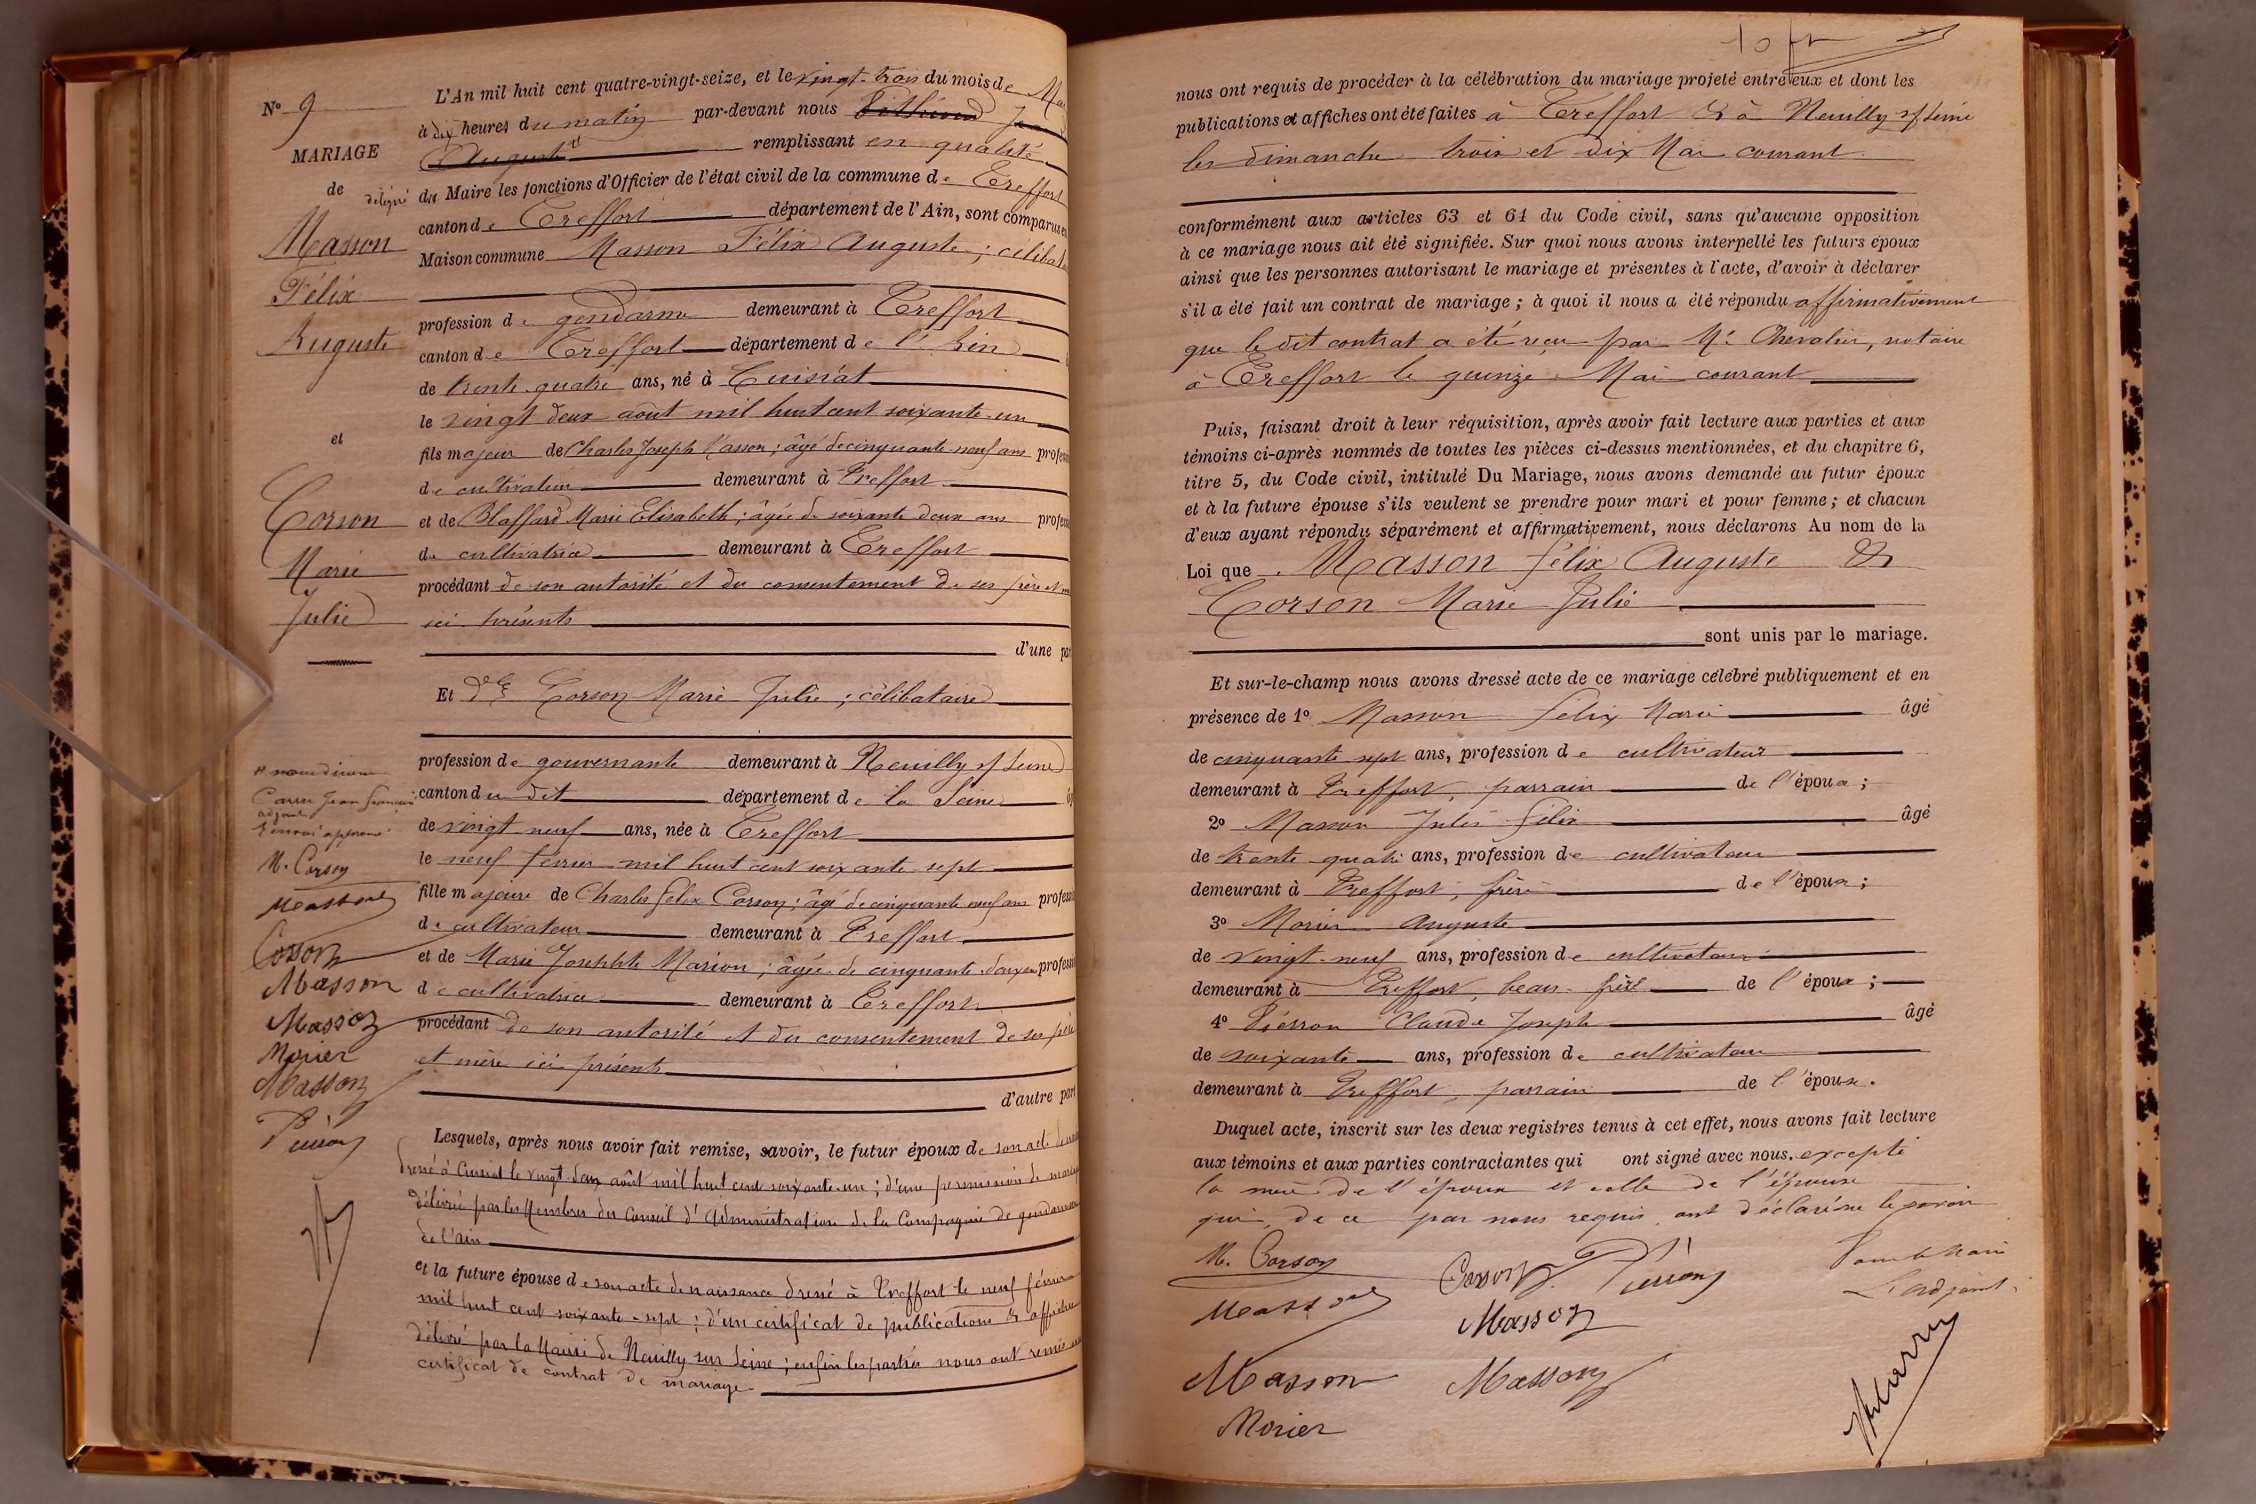 N° 9
MARIAGE
de
Masson
Félix
Auguste
et
Corson
Marie
Julie
Carru Jean François
adjoint
M. Corson
Masson
Corson
Masson
Masson
Morier
Masson
Pierron
L'An mil huit cent quatre-vingt-seize, et le vingt-trois du mois de Mai
à dix heures du matin par-devant nous
Auguste remplissant en qualité
délégué du Maire les fonctions d'Officier de l'état civil de la commune de Treffort
canton de Treffort département de l'Ain, sont comparus en
Maison commune Masson Félix Auguste ; célibat
profession de gendarme demeurant à Treffort
canton de Treffort département de l'Ain
de trente quatre ans, né à Cuisiat
le vingt deux août mil huit cent soixante-un
fils majeur de Charles Joseph Masson ; âgé de cinquante neuf ans profess
de cultivateur demeurant à Treffort
et de Blaffard Marie Elisabeth ; âgée de soixante deux ans profess
de cultivatrice demeurant à Treffort
procédant de son autorité et du consentement de ses père et m
ici présents
d'une par
Et dlle Corson Marie Julie ; célibataire
profession de gouvernante demeurant à Neuilly s/ Seine
canton du dit département de la Seine
de vingt neuf ans, née à Treffort
le neuf février mil huit cent soixante-sept
fille majeure de Charles Félix Corson ; âgé de cinquante neuf ans profess
de cultivateur demeurant à Treffort
et de Marie Josephte Marion ; âgée de cinquante-deux ans profess
de cultivatrice demeurant à Treffort
procédant de son autorité et du consentement de ses père
et mère ici présents
d'autre part
Lesquels, après nous avoir fait remise, savoir, le futur époux de son acte de
dressé à Cuisiat le vingt-deux août mil huit cent soixante-un ; d'une permission de mariage
délivré par les Membres du Conseil d'Administration de la Compagnie de gendarmerie
de l'ain
et la future épouse de son acte de naissance dressé à Treffort le neuf février
mil huit cent soixante-sept ; d'un certificat de publications & affiches
délivré par la Mairie de Neuilly sur Seine ; enfin les parties nous ont remis un
certificat de contrat de mariage
nous ont requis de procéder à la célébration du mariage projeté entre eux et dont les
publications et affiches ont été faites à Treffort & à Neuilly s/ Seine
les dimanche trois et dix Mai courant
conformément aux articles 63 et 64 du Code civil, sans qu'aucune opposition
à ce mariage nous ait été signifiée. Sur quoi nous avons interpellé les futurs époux
ainsi que les personnes autorisant le mariage et présentes à l'acte, d'avoir à déclarer
s'il a été fait un contrat de mariage ; à quoi il nous a été répondu affirmativement
que le dit contrat a été reçu par Me Chevalier, notaire
à Treffort le quinze Mai courant
Puis, faisant droit à leur réquisition, après avoir fait lecture aux parties et aux
témoins ci-après nommés de toutes les pièces ci-dessus mentionnées, et du chapitre 6,
titre 5, du Code civil, intitulé Du Mariage, nous avons demandé au futur époux
et à la future épouse s'ils veulent se prendre pour mari et pour femme ; et chacun
d'eux ayant répondu séparément et affirmativement, nous déclarons Au nom de la
Loi que Masson Félix Auguste &
Corson Marie Julie
sont unis par le mariage.
Et sur-le-champ nous avons dressé acte de ce mariage célébré publiquement et en
présence de 1° Masson Félix Marie âgé
de cinquante sept ans, profession de cultivateur
demeurant à Treffort, parrain de l'époux ;
2° Masson Jules Félix âgé
de trente quatre ans, profession de cultivateur
demeurant à Treffort, frère de l'époux ;
3° Morier Auguste
de vingt-neuf ans, profession de cultivateur
demeurant à Treffort, beau-frère de l'époux ;
4° Pierron Claude Joseph âgé
de soixante ans, profession de cultivateur
demeurant à Treffort, parrain de l'épouse.
Duquel acte, inscrit sur les deux registres tenus à cet effet, nous avons fait lecture
aux témoins et aux parties contractantes qui ont signé avec nous. excepté
la mère de l'époux et celle de l'épouse
qui, de ce par nous requis, ont déclaré ne le savoir
M. Corson Corson Pierron Pour le Maire
L'adjoint
Masson Masson
Masson Masson
Morier